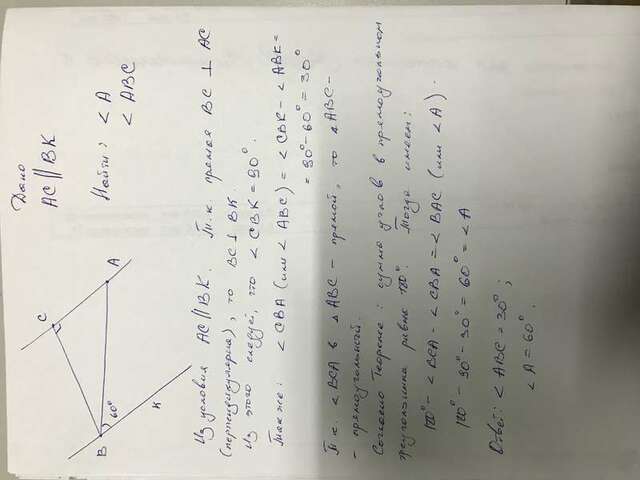 Дано
AC || BK
Найти: <A
<ABC
C
A
B
60°
K
Из условия AC || BK. Т.к прямая BC ⊥ AC
(перпендикулярна), то BC ⊥ BK.
Из этого следует, что <CBK = 90°.
Также: <CBA (или <ABC) = <CBK - <ABK =
= 90° - 60° = 30°
Т.к. <BCA в ▵ABC - прямой, то ▵ABC -
- прямоугольный.
Согласно Теореме: сумма углов в прямоугольном
треугольнике равна 180°. Тогда имеем:
180° - <BCA - <CBA = <BAC (или <A).
180° - 90° - 30° = 60° = <A
Ответ: <ABC = 30°;
<A = 60°.